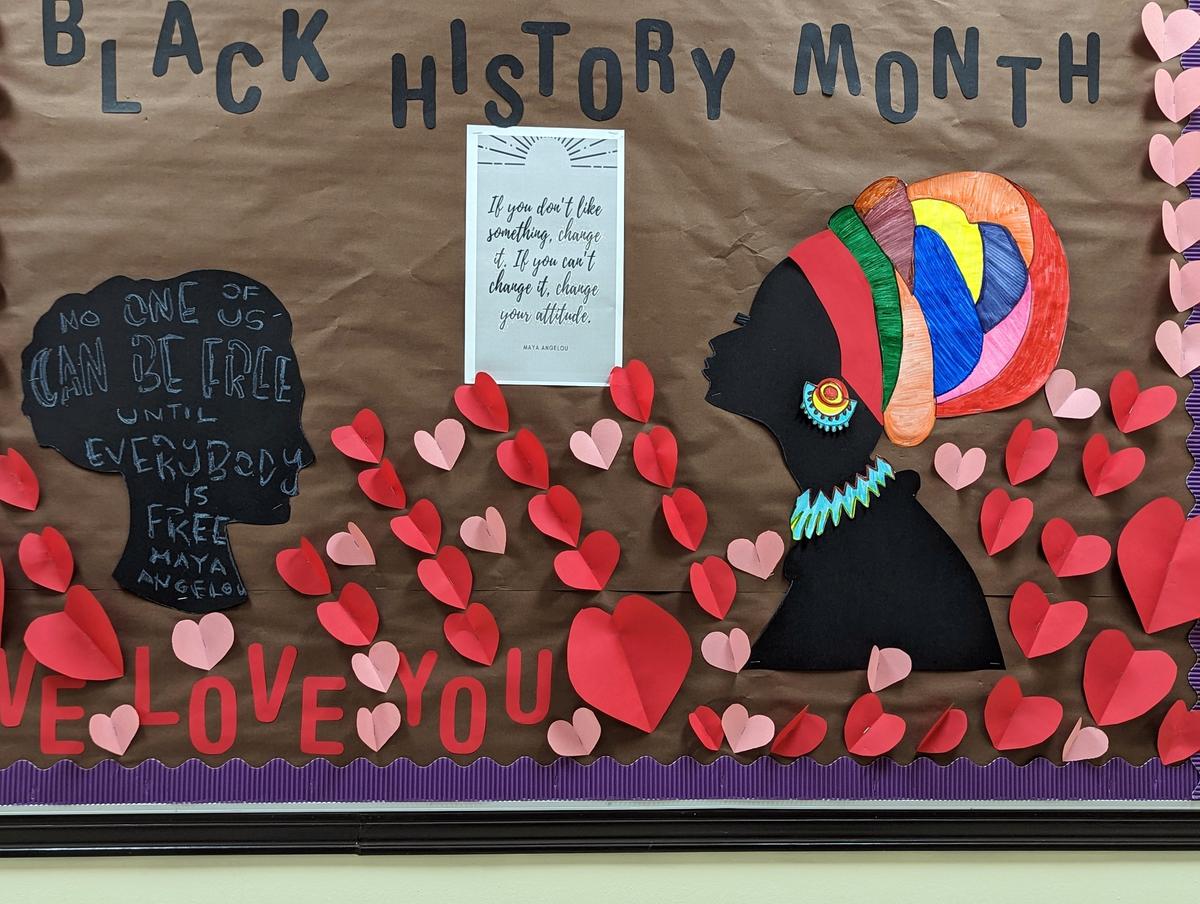 BLACK HISTORY MONTH
If you don't like
something, change
it. If you can't
change it, change
your attitude.
MAYA ANGELOU
NO ONE OF US
CAN BE FREE
UNTIL
EVERYBODY
IS
FREE
MAYA
ANGELOU
WE LOVE YOU